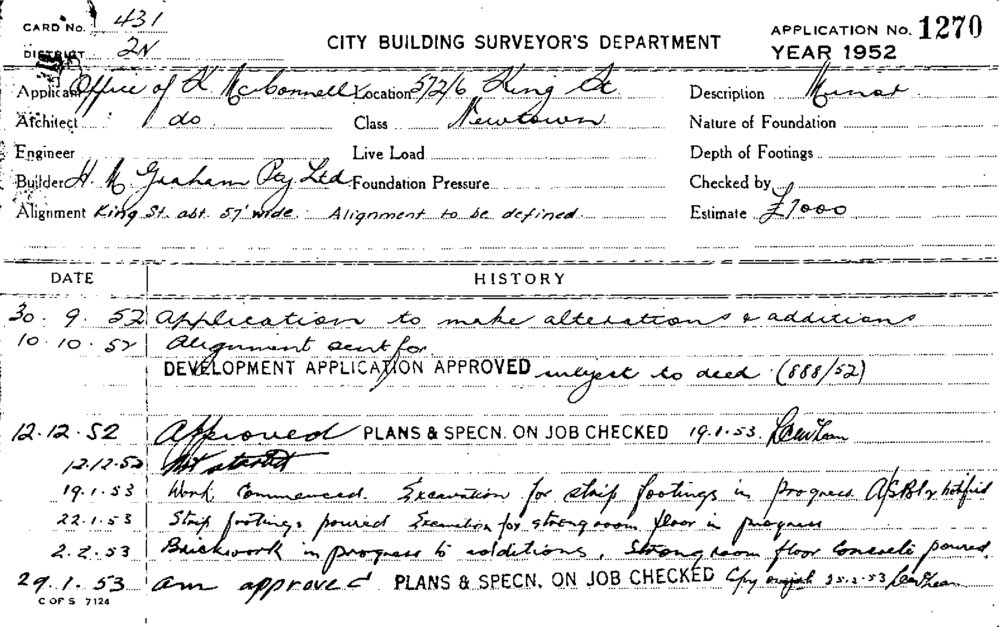 CARD No. 431
DISTRICT 2N
CITY BUILDING SURVEYOR'S DEPARTMENT
APPLICATION No. 1270
YEAR 1952
Applicant Office of K McConnell Location 572/6 King St. Description
Architect do Class Newtown Nature of Foundation
Engineer Live Load Depth of Footings
Builder H. M. Graham Pty Ltd Foundation Pressure Checked by
Alignment King St. abt. 57' wide. Alignment to be defined. Estimate £7000
DATE HISTORY
30. 9. 52 Application to make alterations & additions
10. 10. 52 Alignment sent for
DEVELOPMENT APPLICATION APPROVED subject to deed (888/52)
12.12.52 Approved PLANS & SPECN. ON JOB CHECKED 19.1.53.
12.12.52 Not started
19.1.53 Work Commenced. Excavation for strip footings in progress. notified
22.1.53 Strip footings poured Excavation for strongroom floor in progress
2.2.53 Brickwork in progress to additions, Strong room floor Concrete poured.
29.1.53 am approved PLANS & SPECN. ON JOB CHECKED 25.2.53
C OF S 7124